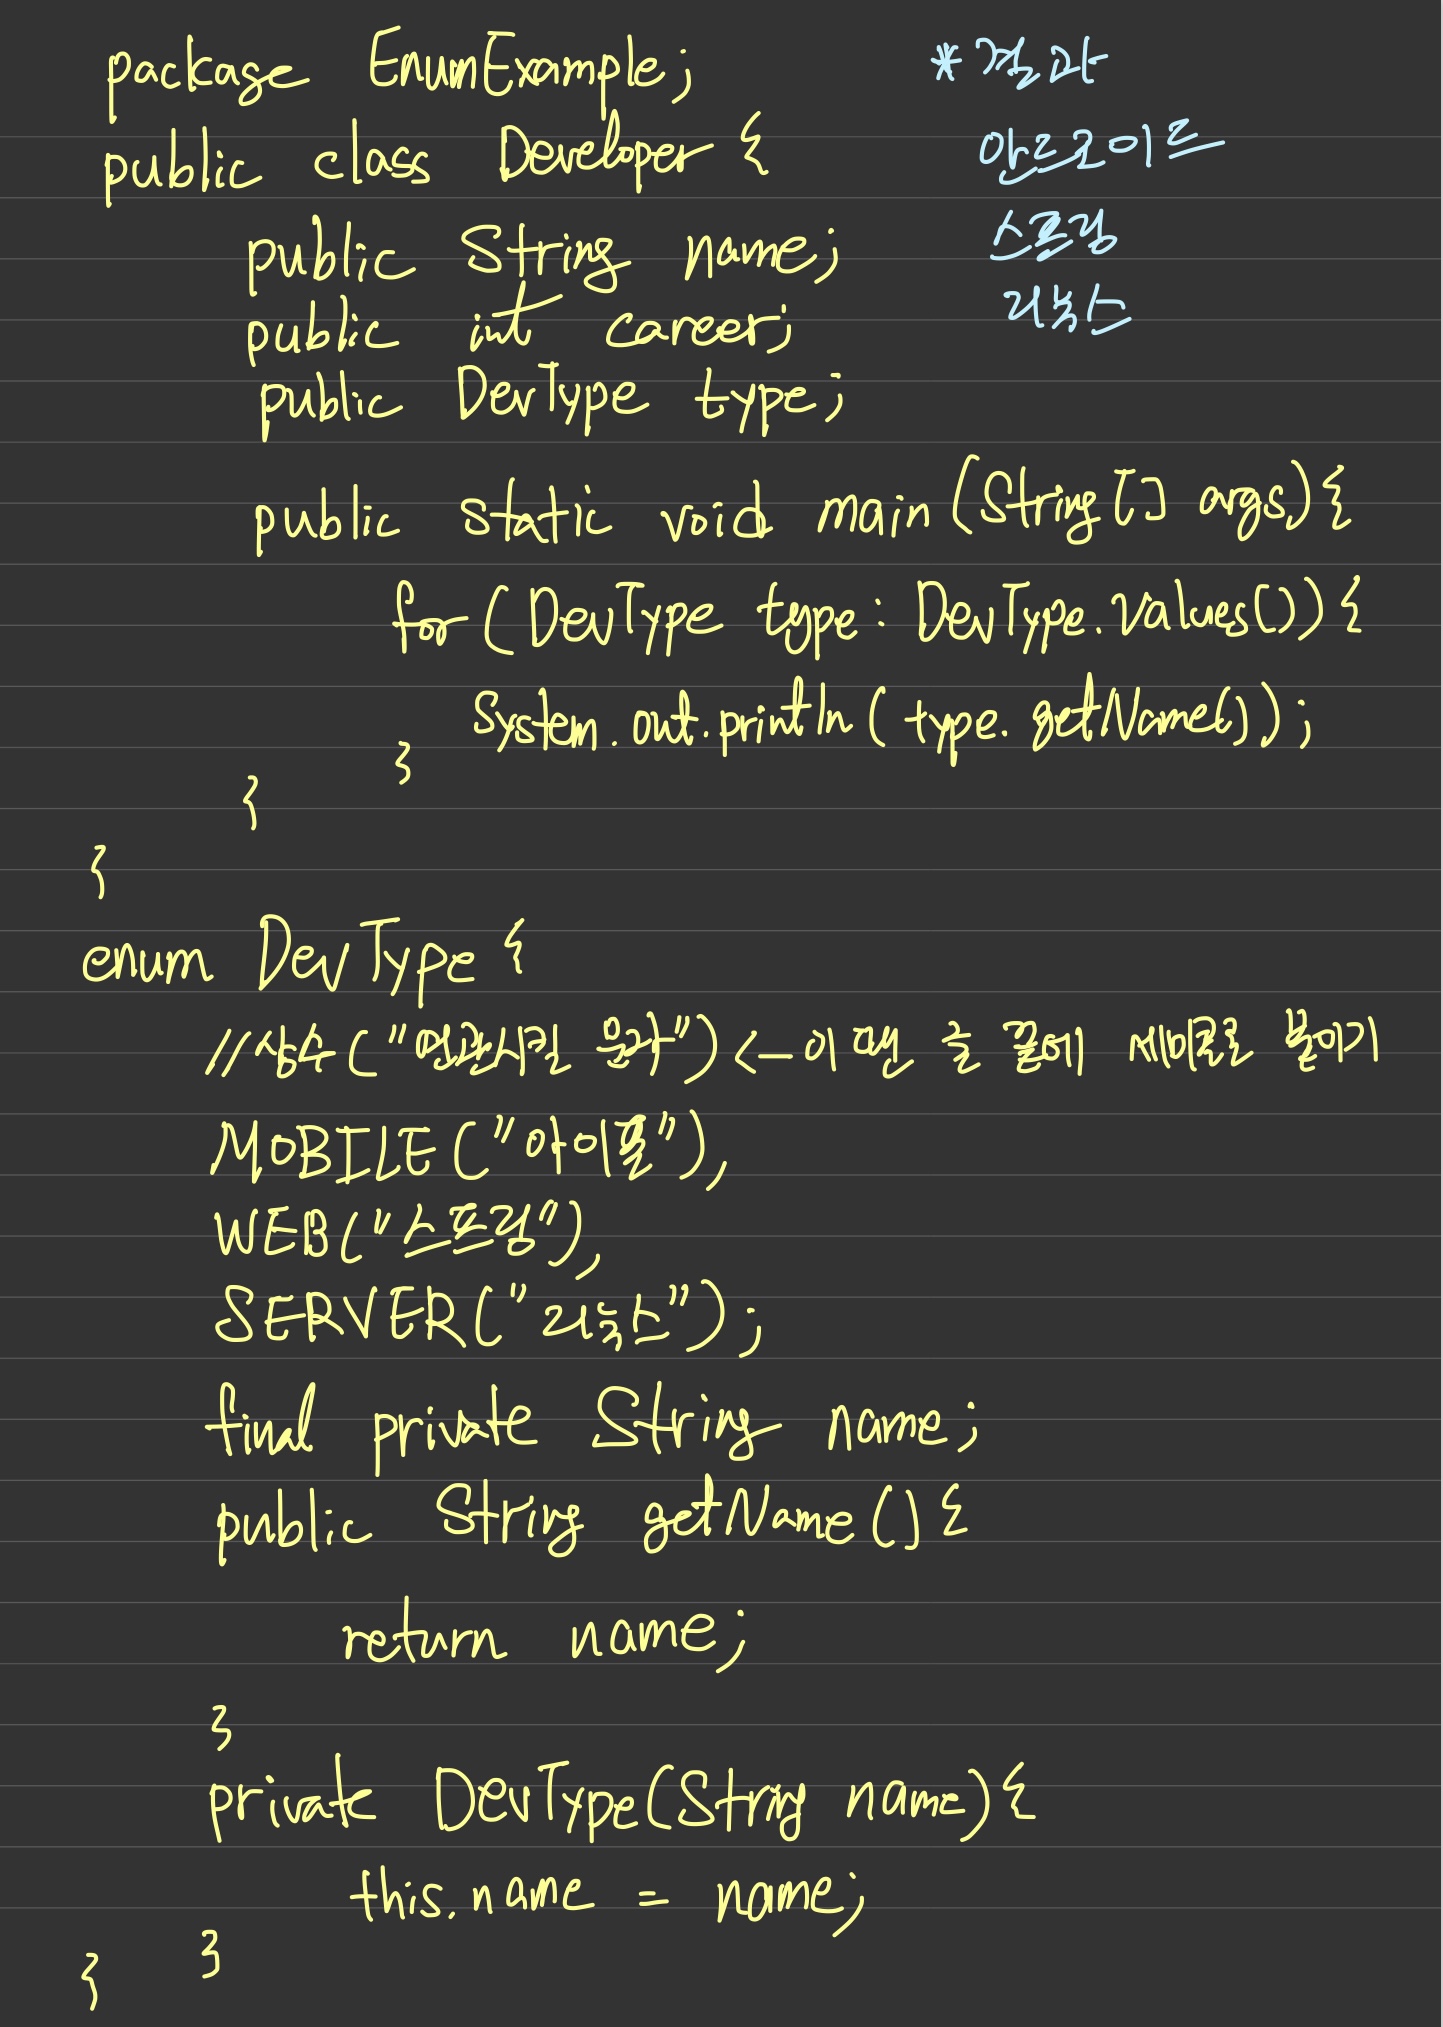 package EnumExample;
*결과
public class Developer {
안드로이드
public String name;
스프링
public int career;
리눅스
public DevType type;
public static void main (String [] args) {
for (DevType type : DevType.values()) {
System.out.println (type.getName());
}
}
}
enum DevType {
//상수 ("연관시킬 문자") <- 이 땐 글 끝에 세미콜론 붙이기
MOBILE ("아이폰"),
WEB ("스프링"),
SERVER ("리눅스");
final private String name;
public String getName () {
return name;
}
private DevType (String name) {
this.name = name;
}
}